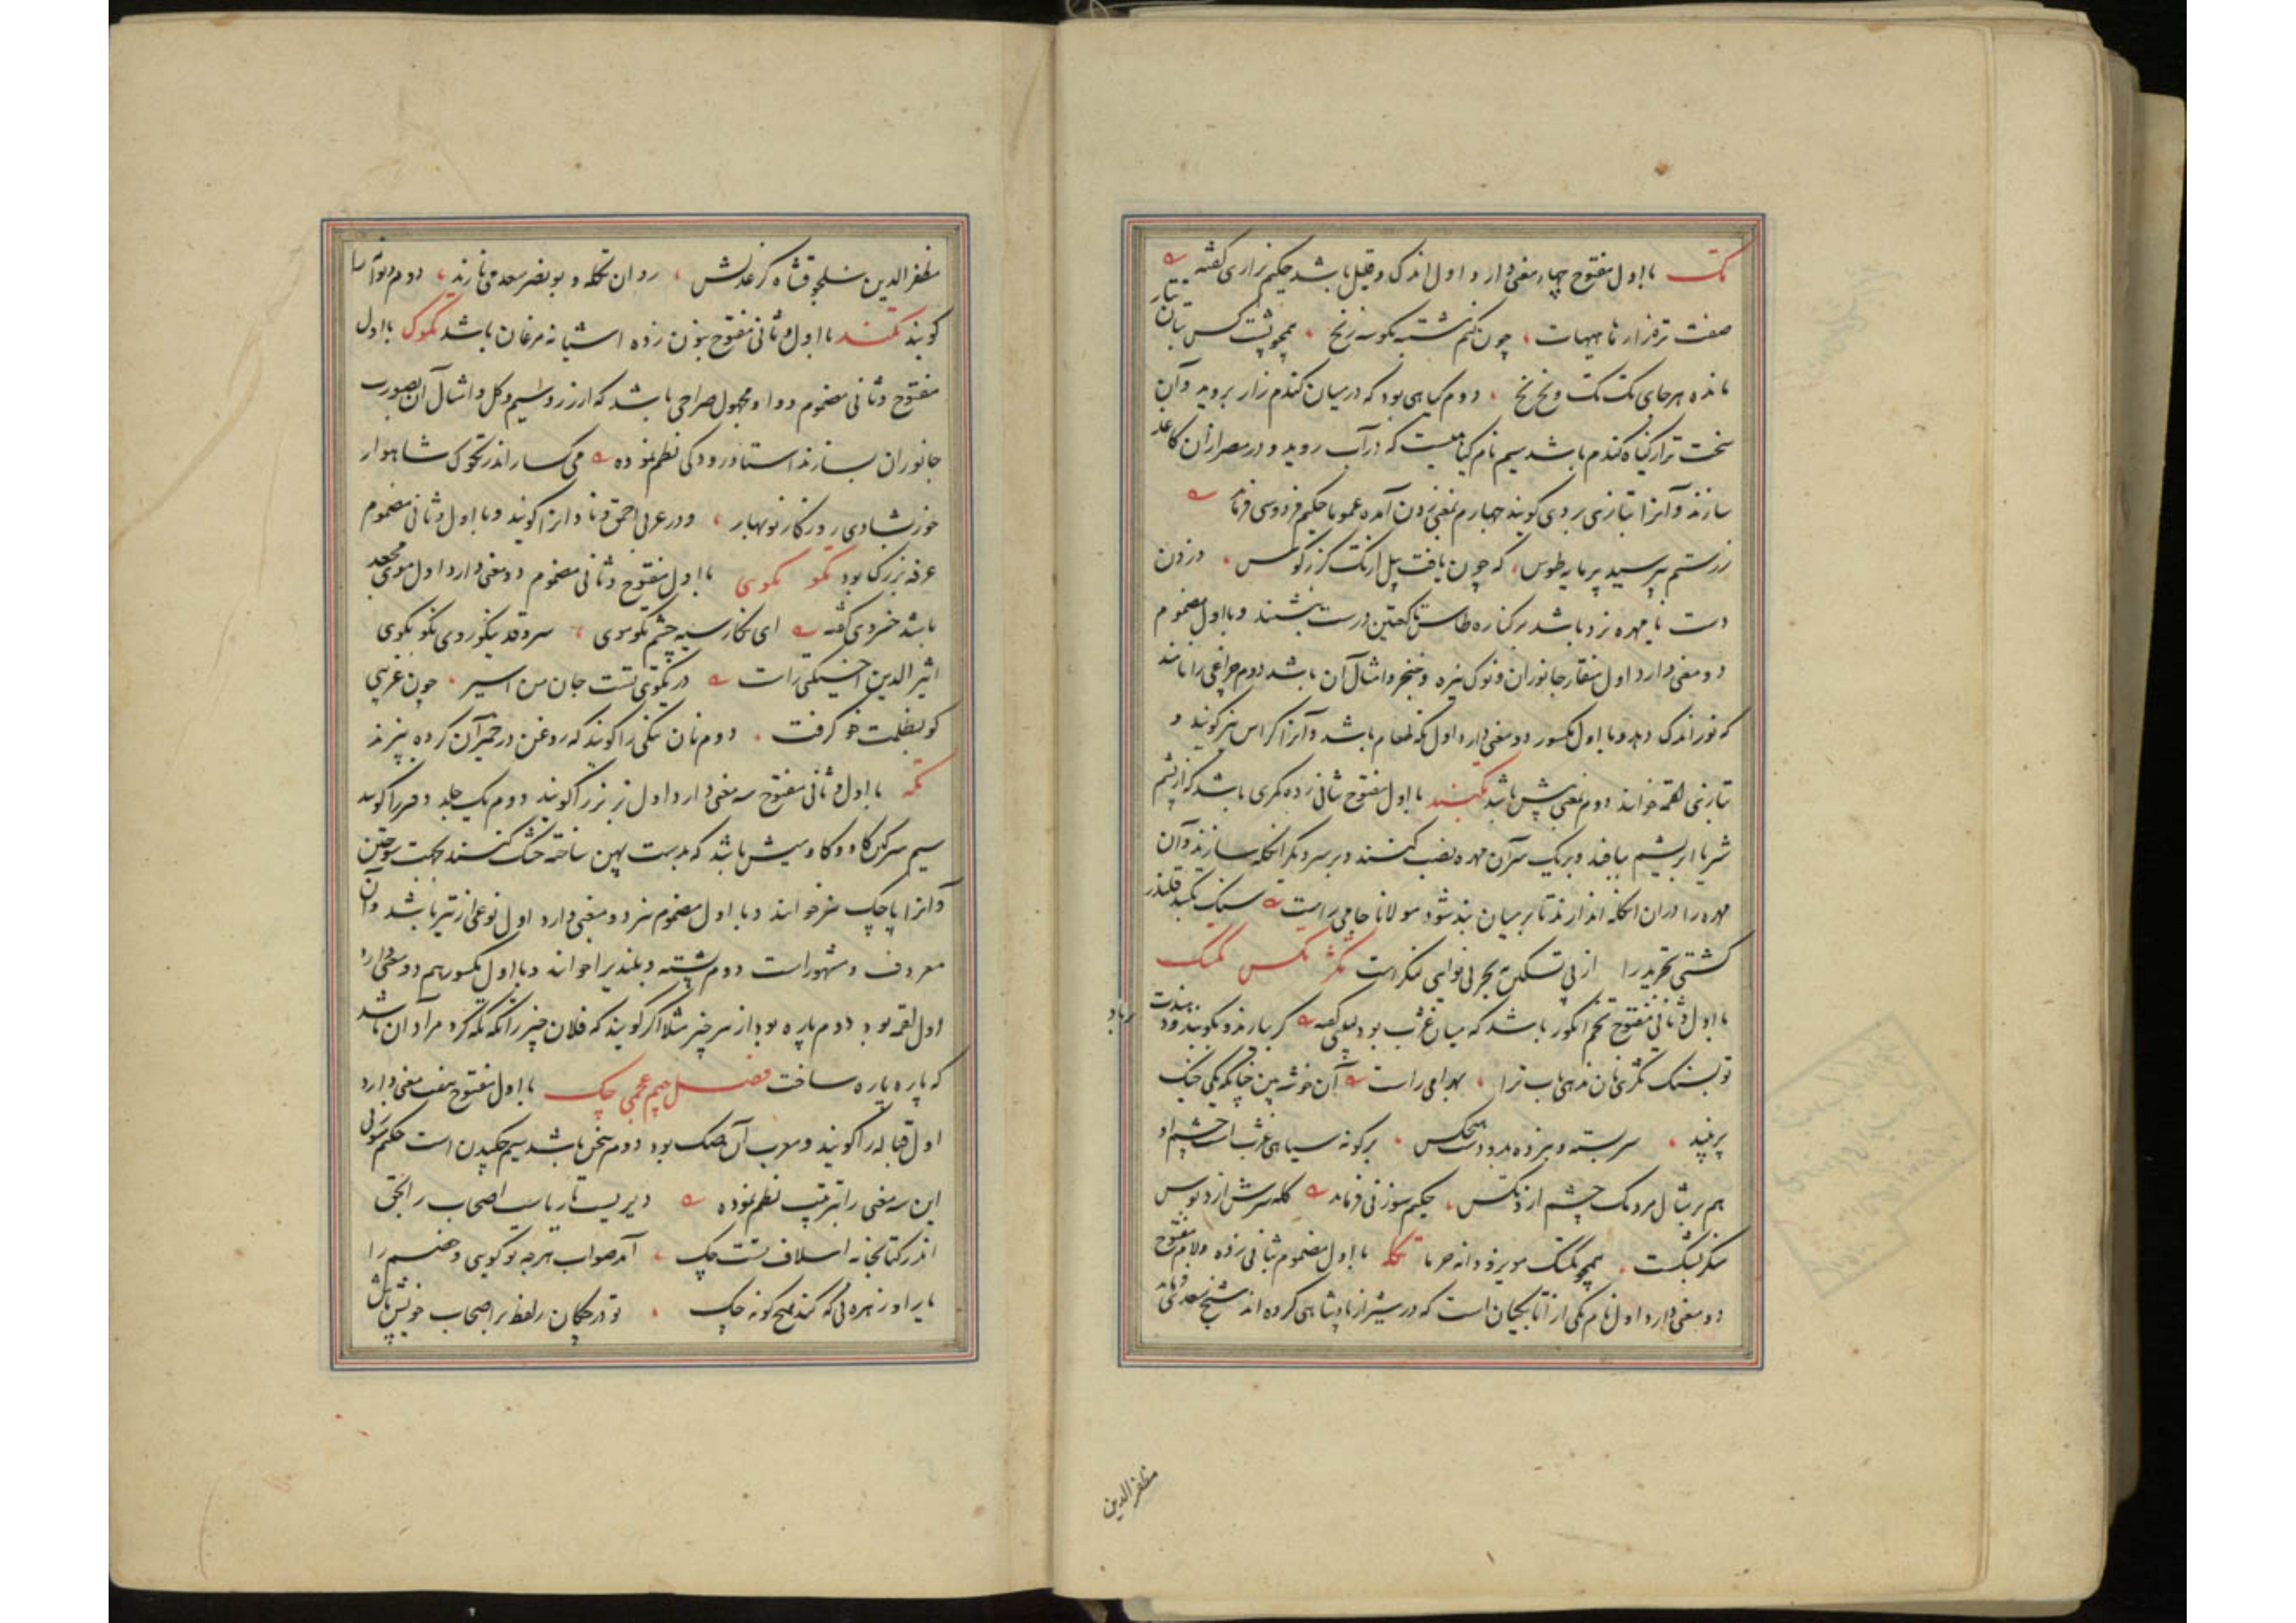 تک با اول مفتوح چهار معنی دارد اول اندک و قلیل باشد حکیم نزاری گفته
صفت ترفزار تا هیهات چون کنم شسته بگونه زنخ همچو پشت کس
مانده هر جای تک تک و نخ نخ دوم گیاهی بود که در میان گندم زار بروید و آن
سخت تر از گیاه گندم باشد سیم نام گیاهیست که در آب روید و در مصر ازان کاغذ
سازند و آنرا بتازی بردی گویند چهارم بمعنی زدن آمده عموما حکیم فردوسی فرماید
ز رستم بپرسید پر مایه طوس که چون یافت پیل از تک گرز کوس در زدن
دست با مهره نرد باشد بر کناره طاس تا کعبتین درست بنشیند و با اول مضموم
دو معنی دارد اول منقار جانوران و نوک نیزه و خنجر و امثال آن باشد دوم چراغی را نامند
که نور اندک دهد و با اول مکسور دو معنی دارد اول تکه طعام باشد و آنرا کراس نیز گویند و
بتازی لقمه خوانند دوم بمعنی پیش باشد تکبند با اول مفتوح ثانی زده کمری باشد که از پشم
شتر یا ابریشم ببافند و بر یک سر آن مهره نصب کنند و بر سر دیگر انگله سازند و آن
مهره را در ان انگله اندازند تا بر میان بند شود مولانا جامی راست سنگ تکبند قلندر
کشتی تجرید را از پی تسکین به بحر بی نوایی لنگر است تکژ تکس تکسک
با اول و ثانی مفتوح تخم انگور باشد که میان غژب بود گفته گر بیارند و بگویند
تو بسنگ تکژی نان ندهی باب ترا بهرامی راست آن خوشه بین چنانکه یکی خیک
پر نبید سربسته و نبرده بدو دست هیچکس بر گونه سیاهی غژب است چشم او
هم بر مثال مردمک چشم از تکس حکیم سوزنی فرماید کله سرش از دبوس
منکر بشکست همچو تکسک مویز و دانه خرما تکله با اول مضموم بثانی زده و لام مفتوح
دو معنی دارد اول نام یکی از اتابکیان است که در شیراز پادشاهی کرده اند شیخ سعدی فرماید
مظفر الدین
مظفر الدین سلجوقشاه کز عدلش روان تکله و بو نصر سعد می نازند دوم دیوانه را
گویند تکند با اول و ثانی مفتوح بنون زده اشیانه مرغان باشد تکوک با اول
مفتوح و ثانی مضموم و واو مجهول صراحی باشد که از زر و سیم و گل و امثال آن بصورت
جانوران بسازند استاد رودکی نظم نموده می گسار اندر تکوک شاهوار
خور بشادی روزگار نوبهار و در عربی احمق و نادانرا گویند و با اول و ثانی مضموم
غرفه بزرگ بود تکو تکوی با اول مفتوح و ثانی مضموم دو معنی دارد اول موی مجعد
باشد خسروی گفته ای نگار سیه چشم تکو موی سرو قد نیکو روی نکو گوی
اثیر الدین اخسیکتی راست در تکوی تست جان من اسیر چون غریبی
کو بظلمت خو گرفت دوم نان تنکی را گویند که روغن در خمیر آن کرده بپزند
تکه با اول و ثانی مفتوح سه معنی دارد اول بز نر را گویند دوم یک جلد دفتر را گویند
سیم سرگین گاو و گاومیش باشد که بدست پهن ساخته خشک کنند بجهت سوختن
و آنرا پاچک نیز خوانند و با اول مضموم نیز دو معنی دارد اول نوعی از تیر باشد و آن
معروف و مشهور است دوم پشته و بلندیرا خوانند و با اول مکسور هم دو معنی دارد
اول لقمه بود دوم پاره بود از هر چیز مثلا اگر گویند که فلان چیز را تکه تکه کرد مراد آن باشد
که پاره پاره ساخت فصل جیم عجمی چک با اول مفتوح هفت معنی دارد
اول قباله را گویند و معرب آن صک بود دوم سخن باشد سیم چکیدن است حکیم سوزنی
این سه معنی را بترتیب نظم نموده دیریست تا ریاست اصحاب را بحق
اندر کتابخانه اسلاف تست چک آمد صواب هر چه تو گویی و خصم را
یارا و زهره نی که کند هیچ گونه چک تو در چکان ز لفظ بر اصحاب خویش باش